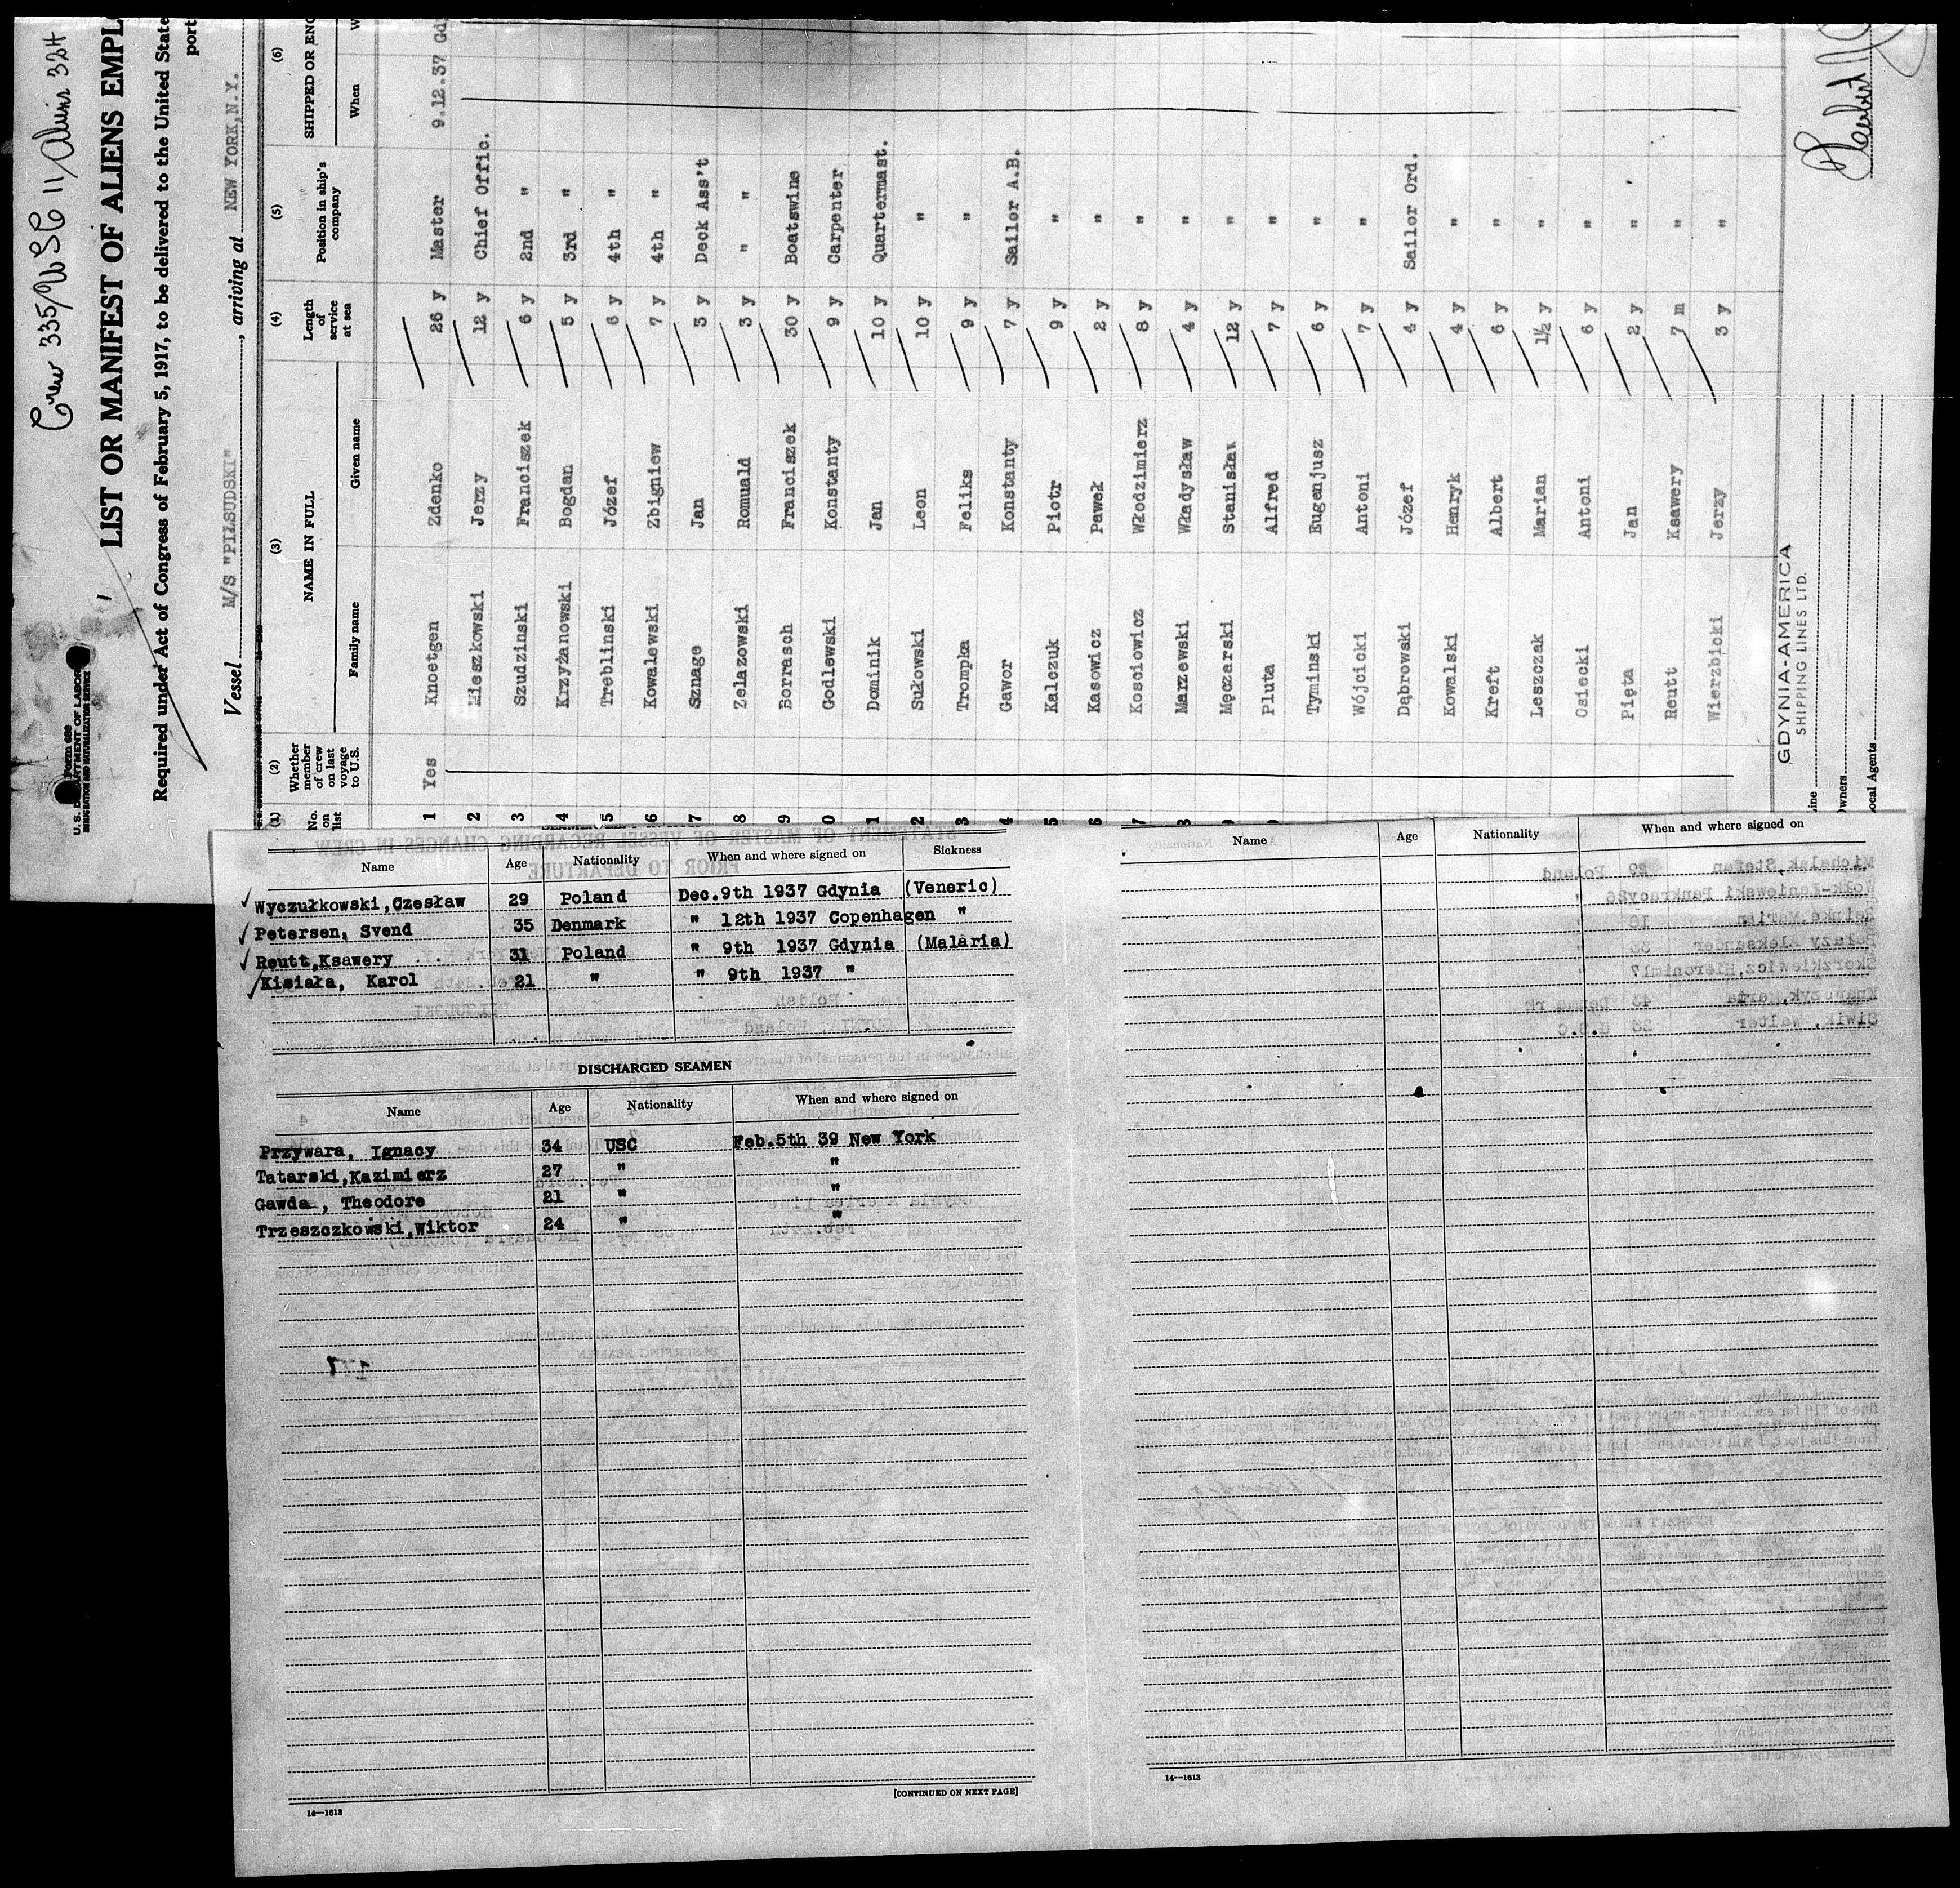 Crew 335/WSC 11/Aliens 324
Form 680
U. S. DEPARTMENT OF LABOR
IMMIGRATION AND NATURALIZATION SERVICE
LIST OR MANIFEST OF ALIENS EMPL
Required under Act of Congress of February 5, 1917, to be delivered to the United State
port
Vessel M/S "PIŁSUDSKI", arriving at NEW YORK, N.Y.
(1) (2) (3) (4) (5) (6)
No. on list Whether member of crew on last voyage to U.S. NAME IN FULL Length of service at sea Position in ship's company SHIPPED OR ENG
Family name Given name When W
1 Yes Knoetgen Zdenko 26 y Master 9.12.37 Gd
2 Mieszkowski Jerzy 12 y Chief Offic.
3 Szudzinski Franciszek 6 y 2nd "
4 Krzyżanowski Bogdan 5 y 3rd "
5 Treblinski Józef 6 y 4th "
6 Kowalewski Zbigniew 7 y 4th "
7 Sznage Jan 3 y Deck Ass't
8 Zelazowski Romuald 3 y " "
9 Borrasch Franciszek 30 y Boatswine
0 Godlewski Konstanty 9 y Carpenter
1 Dominik Jan 10 y Quartermast.
2 Sułowski Leon 10 y "
3 Trompka Feliks 9 y "
4 Gawor Konstanty 7 y Sailor A.B.
5 Kalczuk Piotr 9 y "
6 Kasowicz Paweł 2 y "
7 Kosciowicz Włodzimierz 8 y "
8 Marzewski Władysław 4 y "
Męczarski Stanisław 12 y "
Pluta Alfred 7 y "
Tyminski Eugenjusz 6 y "
Wójcicki Antoni 7 y "
Dąbrowski Józef 4 y Sailor Ord.
Kowalski Henryk 4 y "
Kreft Albert 6 y "
Leszczak Marian 1½ y "
Osiecki Antoni 6 y "
Pięta Jan 2 y "
Reutt Ksawery 7 m "
Wierzbicki Jerzy 3 y "
GDYNIA-AMERICA
SHIPPING LINES LTD.
ine
wners
ocal Agents
Name Age Nationality When and where signed on Sickness
Wyczułkowski,Czesław 29 Poland Dec.9th 1937 Gdynia (Veneric)
Petersen, Svend 35 Denmark " 12th 1937 Copenhagen "
Reutt,Ksawery 31 Poland " 9th 1937 Gdynia (Malaria)
Kisiała, Karol 21 " " 9th 1937 "
DISCHARGED SEAMEN
Name Age Nationality When and where signed on
Przywara, Ignacy 34 USC Feb.5th 39 New York
Tatarski,Kazimierz 27 " "
Gawda, Theodore 21 " "
Trzeszczkowski,Wiktor 24 " "
14—1613
[CONTINUED ON NEXT PAGE]
Name Age Nationality When and where signed on
14—1613